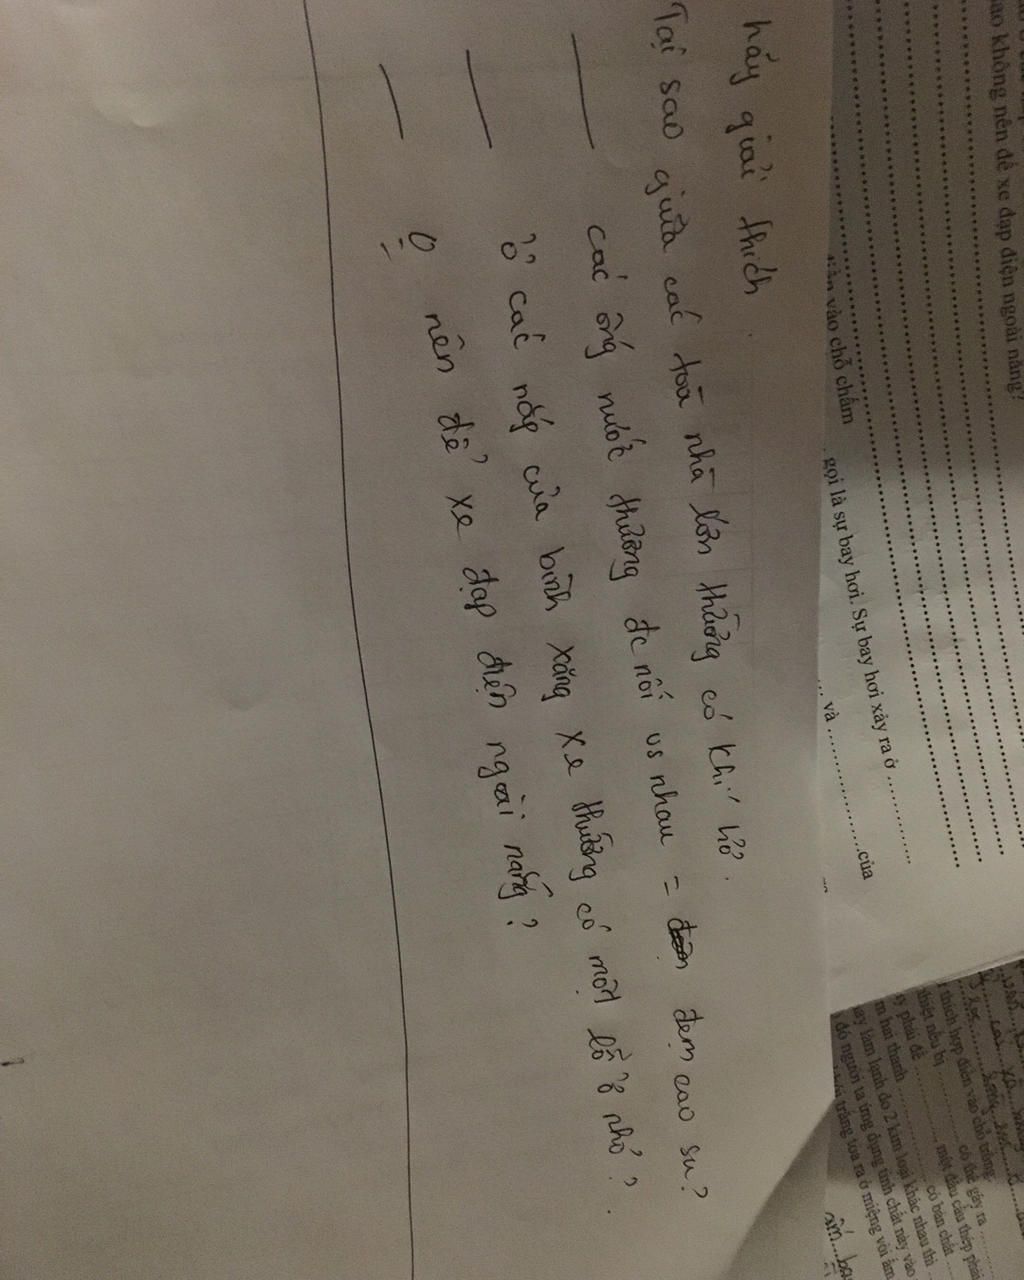 ao không nên để xe đạp điện ngoài nắng?
vào chỗ chấm
gọi là sự bay hơi. Sự bay hơi xảy ra ở ............
... và ...............của
hãy giải thích.
Tại sao giữa các toà nhà lớn thường có khí hở.
—— các ống nước thường đc nối vs nhau = đệm cao su?
—— ở các nắp của bình xăng xe thường có một lỗ nhỏ?
—— 0 nên để xe đạp điện ngoài nắng?
thích hợp điền vào chỗ trống.
có thể gây ra
nhiệt nếu bị ............ một đầu cầu thép phải
y phải để ............ có bản chất
m hai thanh
ay làm lạnh do 2 kim loại khác nhau thì
đó người ta ứng dụng tính chất này vào
trắng tỏa ra ở miệng vòi ấm